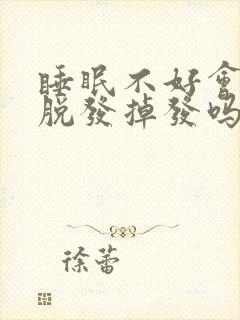 睡眠不好會
脫發掉發嗎
徐蕾